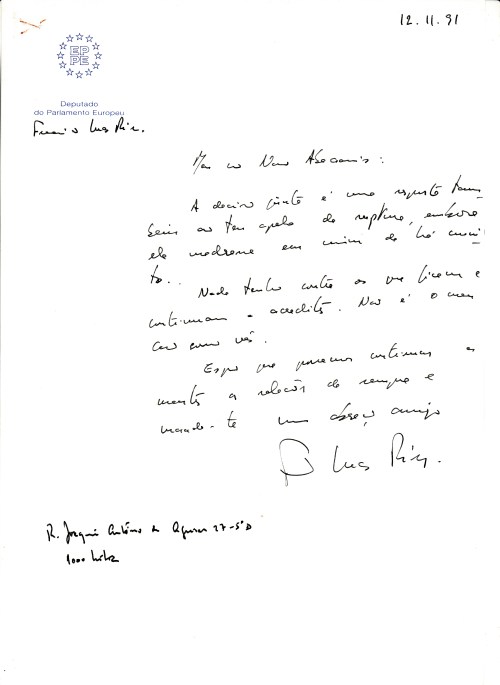 12.11.91
EP
PE
Deputado
do Parlamento Europeu
Francisco Lucas Pires.
Meu caro Nuno Abecasis:
A decisão junta é uma resposta tam-
bém ao teu apelo de ruptura, embora
ela madurasse em mim de há muito
Nada tenho contra os que ficam e
continuam a acreditar. Não é o meu
caso como vês.
Espero que possamos continuar a
manter as relações de sempre e
mando-te um abraço amigo
F Lucas Pires.
R. Joaquim António de Aguiar 27-5º D
1000 Lisboa